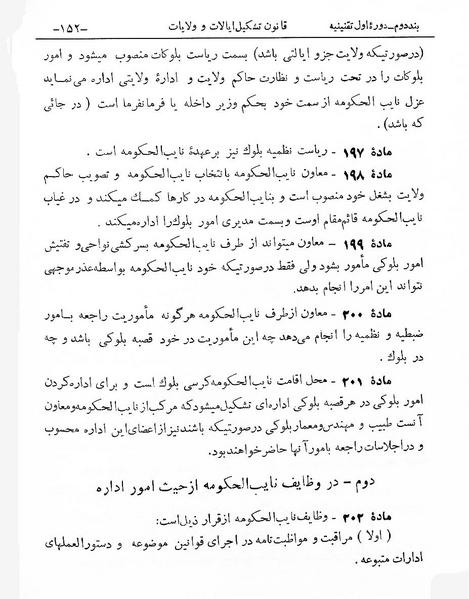 بنددوم–دورهٔ اول تقنینیه قانون تشکیل ایالات و ولایات –۱۵۲–
(درصورتیکه ولایت جزو ایالتی باشد) بسمت ریاست بلوکات منصوب میشود و امور
بلوکات را در تحت ریاست و نظارت حاکم ولایت و ادارهٔ ولایتی اداره می‌نماید
عزل نایب‌الحکومه از سمت خود بحکم وزیر داخله یا فرمانفرما است ( در جائی
که باشد) .
مادهٔ ۱۹۷ - ریاست نظمیه بلوک نیز برعهدهٔ نایب‌الحکومه است .
مادهٔ ۱۹۸ - معاون نایب‌الحکومه بانتخاب نایب‌الحکومه و تصویب حاکم
ولایت بشغل خود منصوب است و بنایب‌الحکومه در کارها کمك میکند و در غیاب
نایب‌الحکومه قائم‌مقام اوست وبسمت مدیری امور بلوك‌را اداره‌میکند .
مادهٔ ۱۹۹ – معاون میتواند از طرف نایب‌الحکومه بسرکشی‌نواحی‌و تفتیش
امور بلوکی مأمور بشود ولی فقط درصورتیکه خود نایب‌الحکومه بواسطه‌عذرموجهی
نتواند این امررا انجام بدهد.
مادهٔ ۲۰۰ - معاون ازطرف نایب‌الحکومه هرگونه مأموریت راجعه بــامور
ضبطیه و نظمیه را انجام می‌دهد چه این مأموریت در خود قصبه بلوکی باشد و چه
در بلوك .
مادهٔ ۲۰۱ - محل اقامت نایب‌الحکومه‌کرسی بلوك است و برای اداره‌کردن
امور بلوکی در هرقصبه بلوکی اداره‌ای تشکیل‌میشودکه مرکب‌از نایب‌الحکومه‌ومعاون
آنست طبیب و مهندس‌ومعماربلوکی درصورتیکه باشندنیزازاعضای‌این اداره محسوب
و دراجلاسات راجعه بامورآنها حاضرخواهندبود.
دوم – در وظایف نایب‌الحکومه ازحیث امور اداره
مادهٔ ۲۰۲ - وظایف‌نایب‌الحکومه ازقرار ذیل‌است:
( اولا ) مراقبت و مواظبت‌تامه در اجرای قوانین موضوعه و دستورالعملهای
ادارات متبوعه .